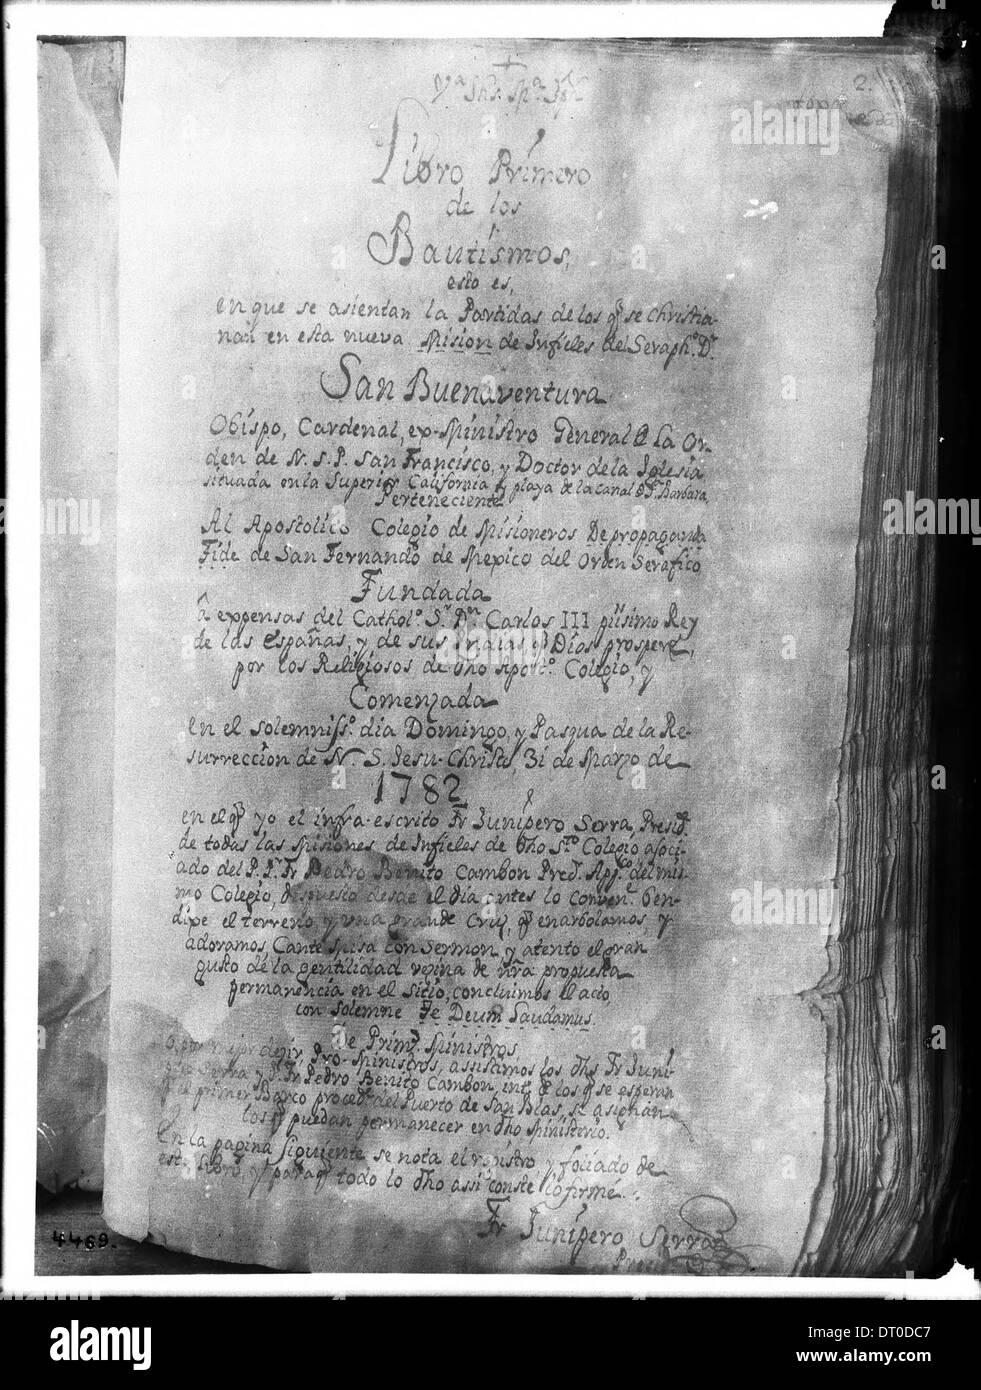 2.
Libro Primero
de los
Bautismos,
esto es,
en que se asientan la Partidas de los q̃ se Christia-
nan en esta nueva Mision de Infieles del Seraph.º D.r
San Buenaventura
Obispo, Cardenal, ex-Ministro General d la Or-
den de N. S. P. San Francisco, y Doctor de la Iglesia
situada en la Superior California y playa de la canal d S.ta Barbara,
Perteneciente
Al Apostolico Colegio de Misioneros De propaganda
Fide de San Fernando de Mexico del Orden Serafico
Fundada
â expensas del Cathol.º S.r D.n Carlos III piisimo Rey
de las españas, y de sus Indias, q̃ Dios prospere,
por los Religiosos de dho Apost.º Colegio, y
Comenzada
en el solemniss.º dia Domingo, y Pasqua de la Re-
surreccion de N. S. Jesu-Christo, 31 de Marzo de
1782
en el q̃ yo el infra-escrito Fr Junipero Serra, Presid.te
de todas las Misiones de Infieles de dho S.to Colegio asoci-
ado del P. P.r Fr Pedro Benito Cambon Pred.r App.co del mis-
mo Colegio, despuesto desde el dia antes lo conven.te ben-
dixe el terreno, y una grande Cruz, q̃ enarbolamos, y
adoramos, Cantè Misa con Sermon, y atento el gran
gusto de la gentilidad vezina de nr̃a propuesta
permanencia en el Sitio, concluimos el acto
con solemne Te Deum Laudamus.
de Prim.s Ministros
o por mejor dezir, Pro-Ministros, assistimos los dhs Fr Juni-
pero Serra y P. Fr Pedro Benito Cambon, int. q̃ los q̃ se esperan
primer Barco proced.te del Puerto de San Blas, se asignan
los q̃ puedan permanecer en dho Ministerio.
En la pagina siguiente se nota el registro y foliado de
este Libro, y para q̃ todo lo dho assi conste lo firmè.
Fr Junipero Serra
4469.
alamy
a
alamy stock photo
DT0DC7
www.alamy.com